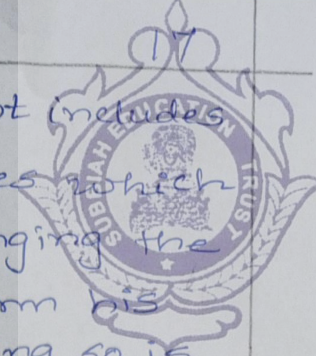 17
ot includes
es which
nging the
rm his
ng so is
SUBBIAH EDUCATION TRUST